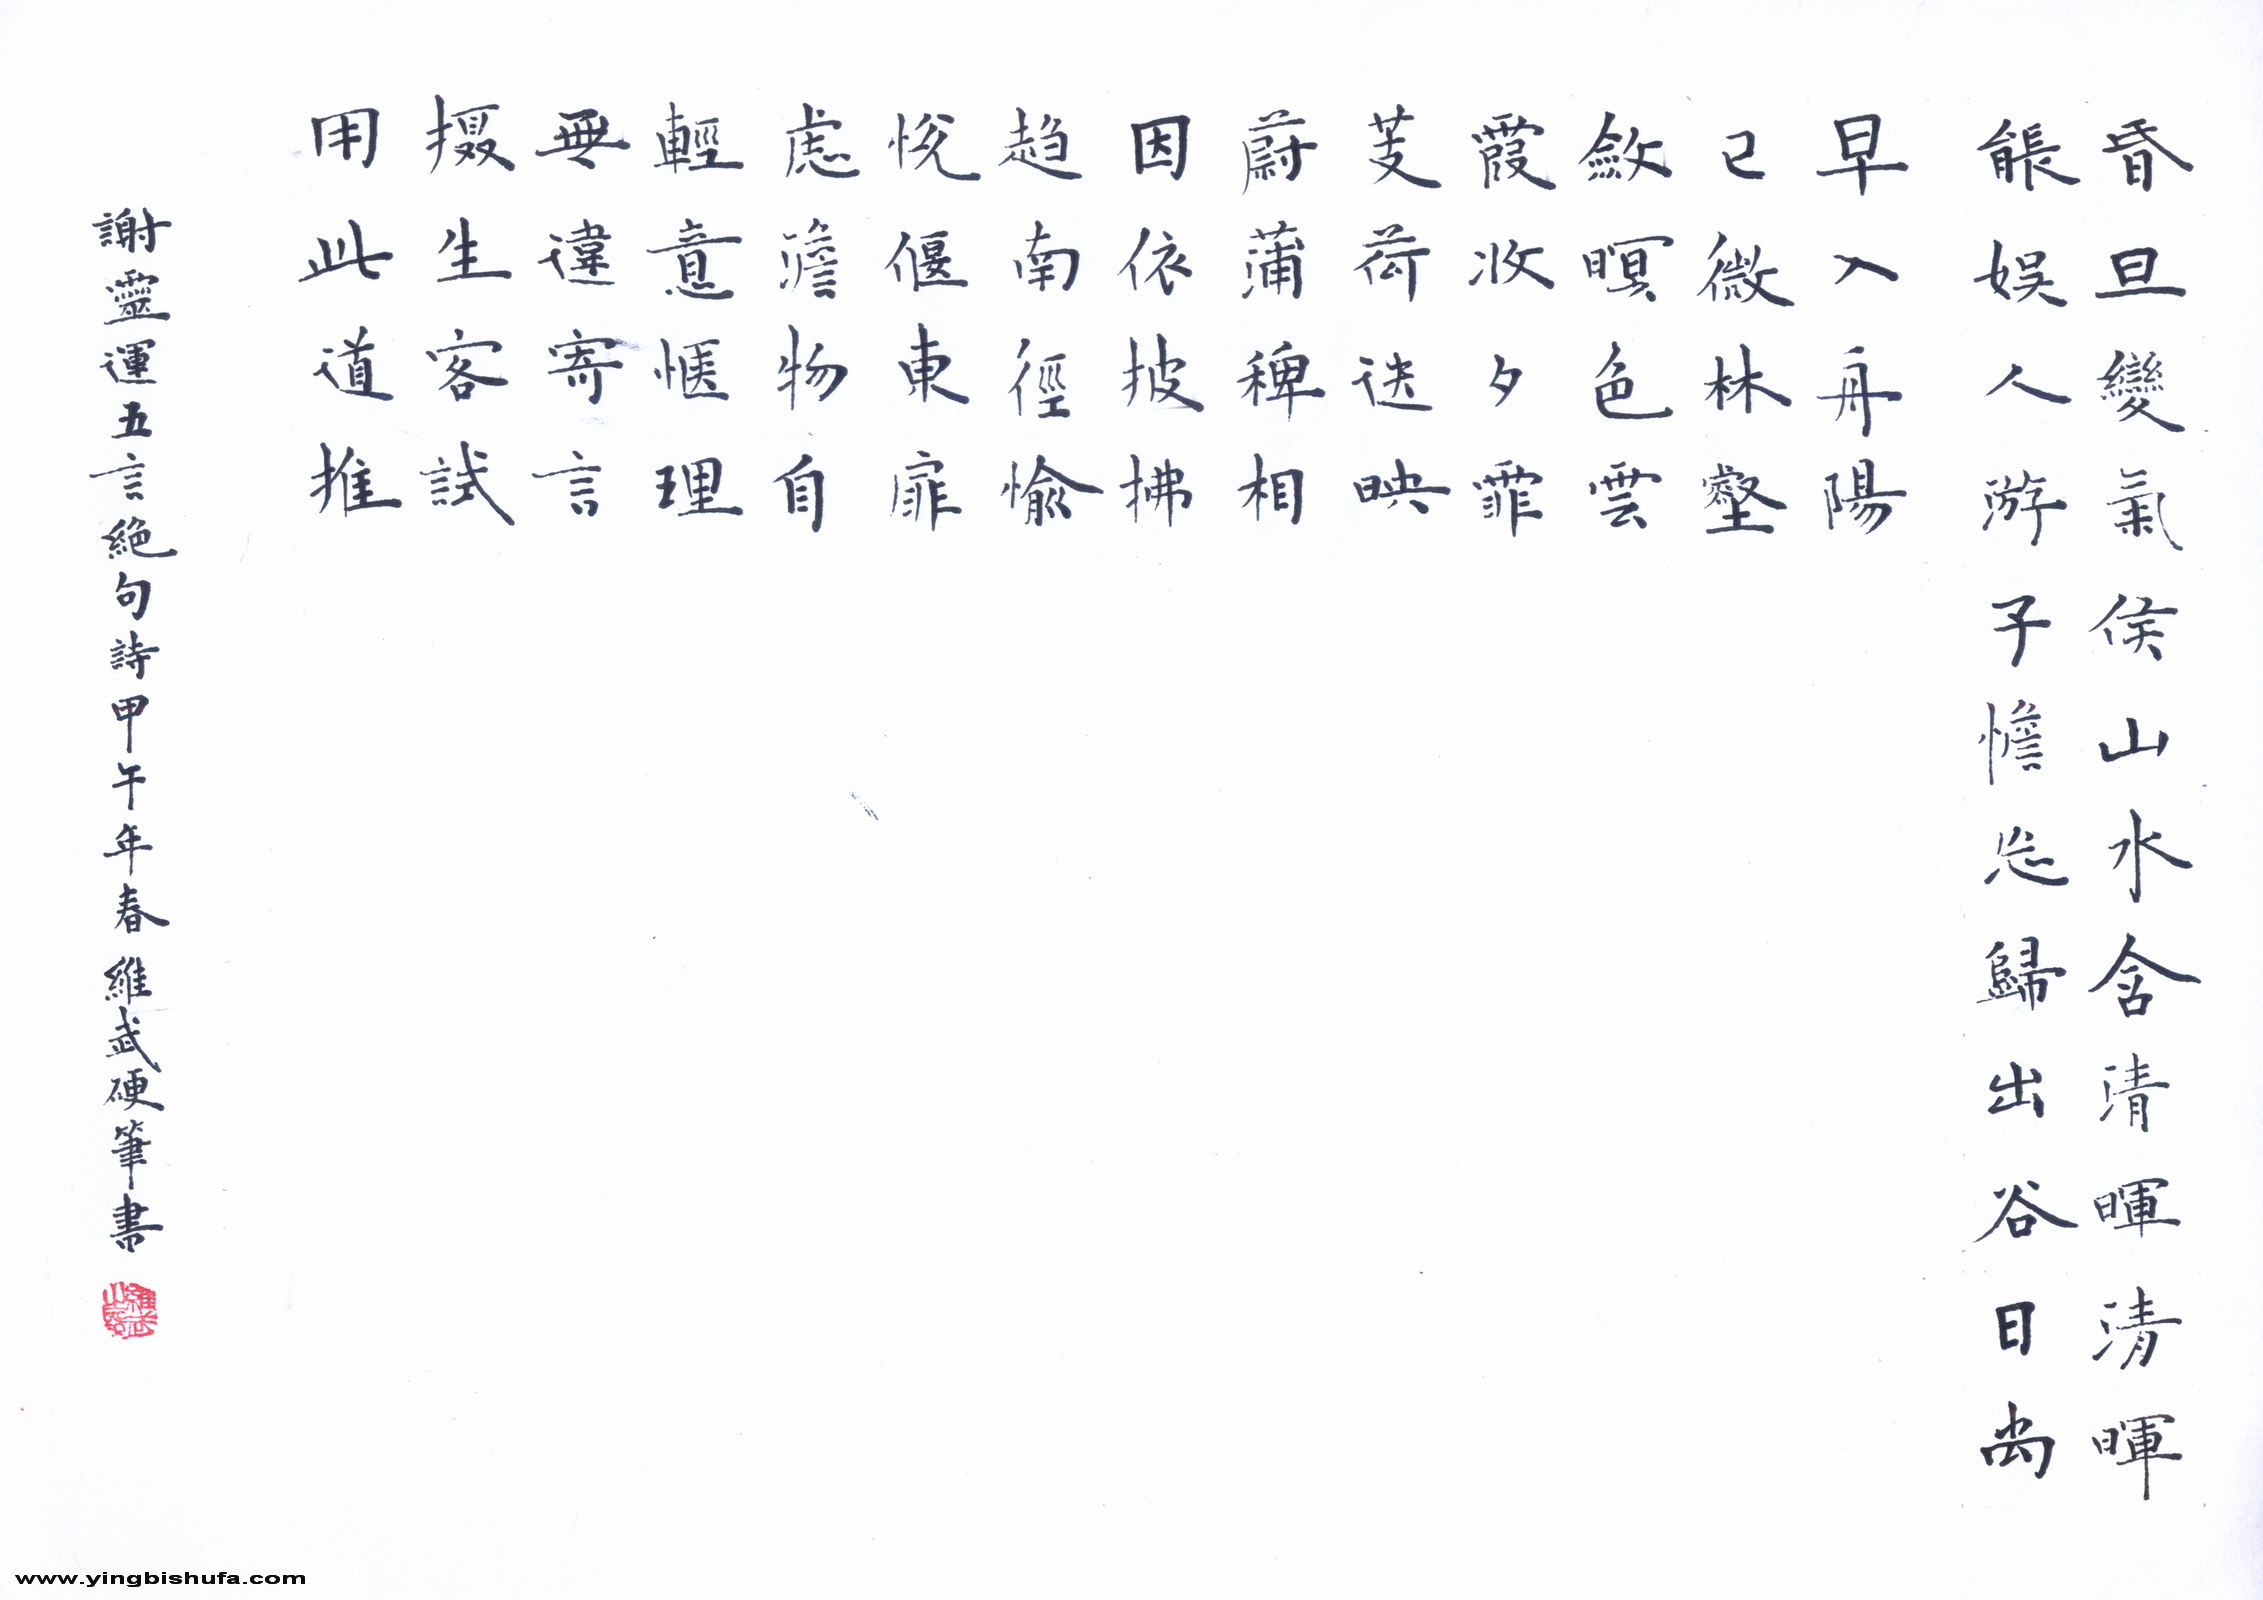 昏旦變氣侯山水含清暉清暉
能娛人游子憺忘歸出谷日尚
早入舟陽
已微林壑
斂暝色雲
霞收夕霏
芰荷迭映
蔚蒲稗相
因依披拂
趋南徑愉
悅偃東扉
慮澹物自
輕意愜理
無違寄言
摄生客試
用此道推
謝靈運五言絕句詩甲午年春維武硬筆書
www.yingbishufa.com